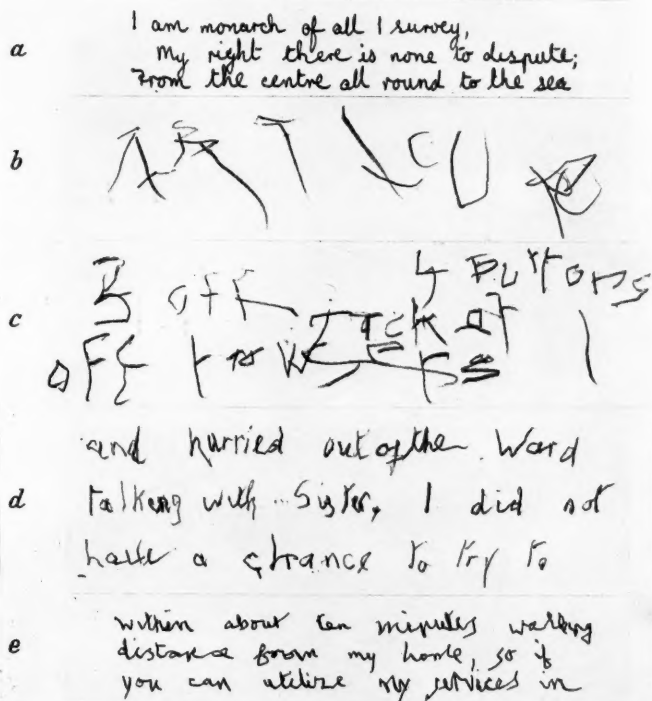 a
I am monarch of all I survey,
My right there is none to dispute;
From the centre all round to the sea
b
A R T I C U
c
B off 4 Buttons
Jacket 1
off trows rs
d
and hurried out of the Ward
talking with Sister, I did not
have a chance to try to
e
within about ten minutes walking
distance from my home, so if
you can utilize my services in